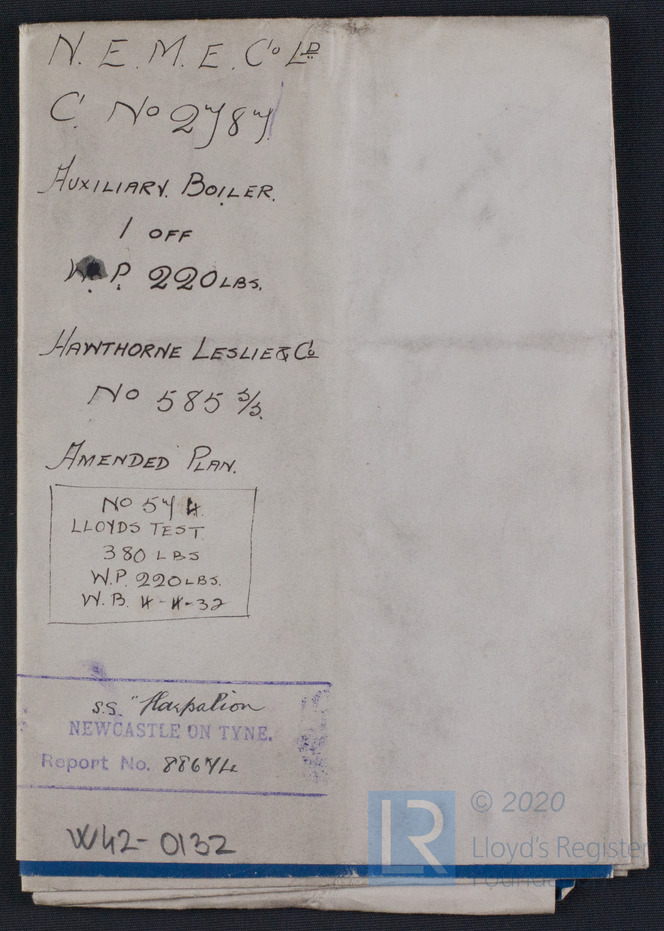 N. E. M. E. Co LD
C. No 2787
AUXILIARY. BOILER.
1 OFF
W.P. 220 LBS.
HAWTHORNE LESLIE & Co
No 585 S/S.
AMENDED PLAN.
No 574
LLOYDS TEST.
380 LBS
W.P. 220 LBS.
W.B. 4-4-32
s.s. "Harpalion
NEWCASTLE ON TYNE.
Report No. 88674
W42-0132
LR
© 2020
Lloyd's Register
Foundation